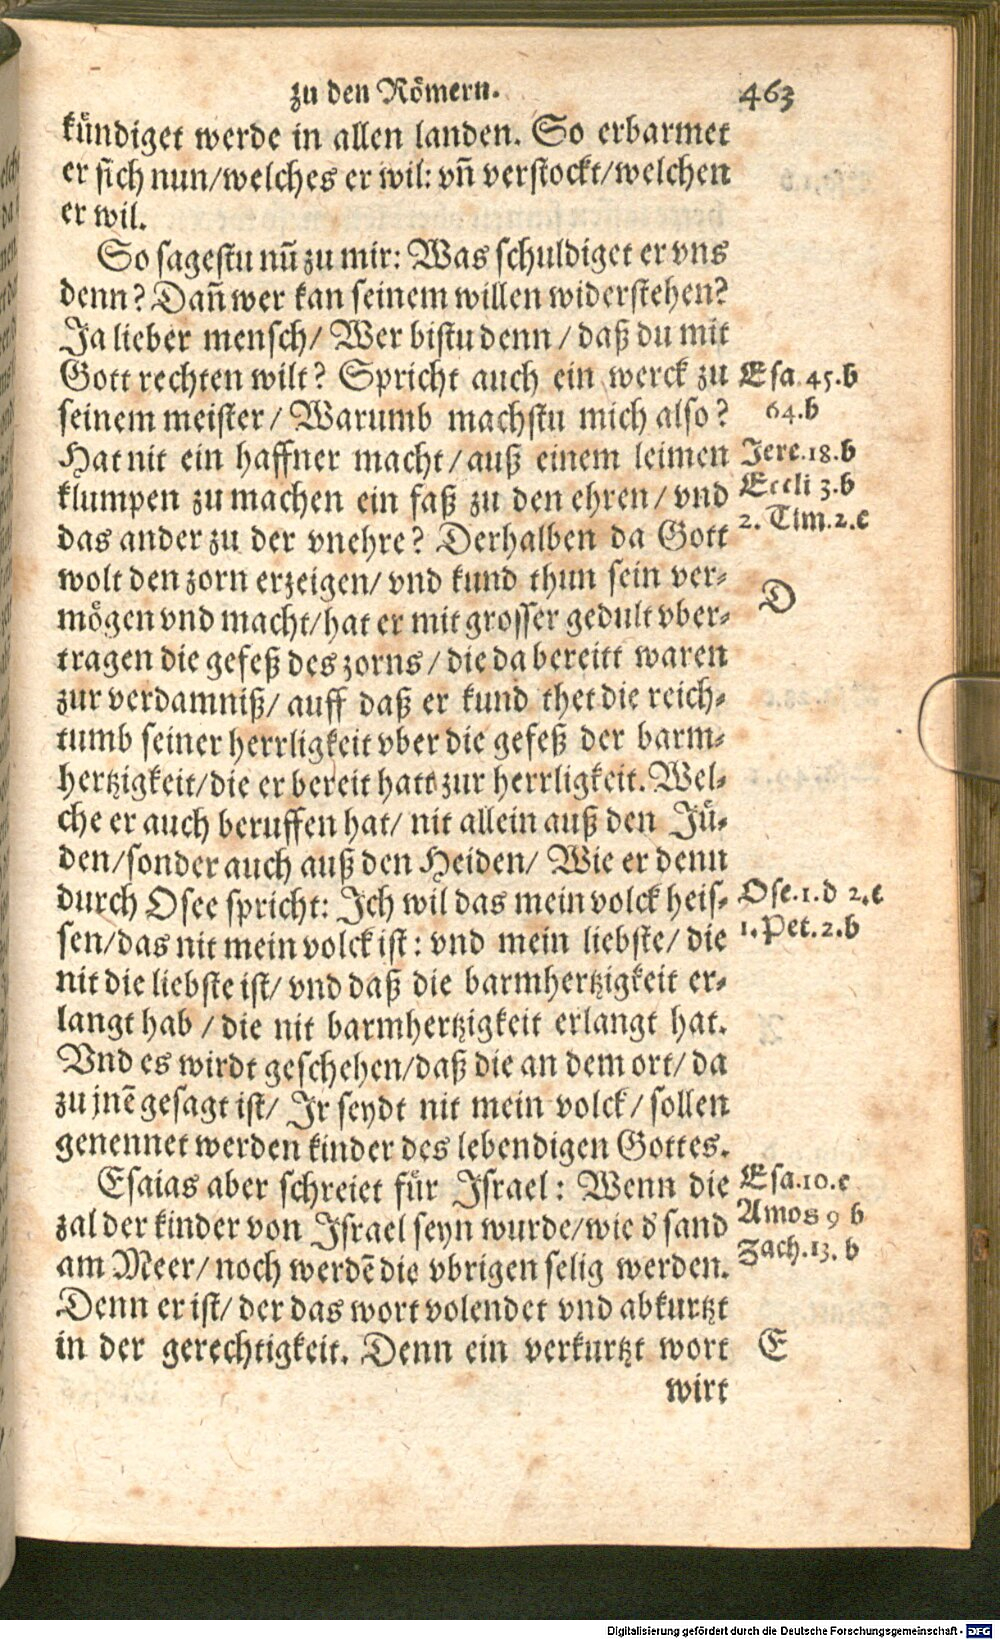 zu den Römern. 463
kündiget werde in allen landen. So erbarmet
er sich nun/welches er wil: vñ verstockt/welchen
er wil.
So sagestu nũ zu mir: Was schuldiget er vns
denn? Dañ wer kan seinem willen widerstehen?
Ja lieber mensch/ Wer bistu denn/ daß du mit
Gott rechten wilt? Spricht auch ein werck zu Esa. 45.b
seinem meister/ Warumb machstu mich also? 64.b
Hat nit ein haffner macht/ auß einem leimen Jere.18.b
klumpen zu machen ein faß zu den ehren/ vnd Eccli 3.b
das ander zu der vnehre? Derhalben da Gott 2. Tim.2.c
wolt den zorn erzeigen/ vnd kund thun sein ver-
mögen vnd macht/hat er mit grosser gedult vber- D
tragen die gefeß des zorns/ die da bereitt waren
zur verdamniß/ auff daß er kund thet die reich-
tumb seiner herrligkeit vber die gefeß der barm-
hertzigkeit/die er bereit hatt zur herrligkeit. Wel-
che er auch beruffen hat/ nit allein auß den Jü-
den/sonder auch auß den Heiden/ Wie er denn
durch Osee spricht: Ich wil das mein volck heis- Ose.1.d 2.c
sen/das nit mein volck ist: vnd mein liebste/ die 1.Pet.2.b
nit die liebste ist/ vnd daß die barmhertzigkeit er-
langt hab/ die nit barmhertzigkeit erlangt hat.
Vnd es wirdt geschehen/daß die an dem ort/ da
zu jnẽ gesagt ist/ Ir seydt nit mein volck/ sollen
genennet werden kinder des lebendigen Gottes.
Esaias aber schreiet für Israel: Wenn die Esa.10.c
zal der kinder von Israel seyn wurde/wie d' sand Amos 9 b
am Meer/ noch werdẽ die vbrigen selig werden. Zach.13. b
Denn er ist/ der das wort volendet vnd abkurtzt
in der gerechtigkeit. Denn ein verkurtzt wort E
wirt
Digitalisierung gefördert durch die Deutsche Forschungsgemeinschaft - DFG